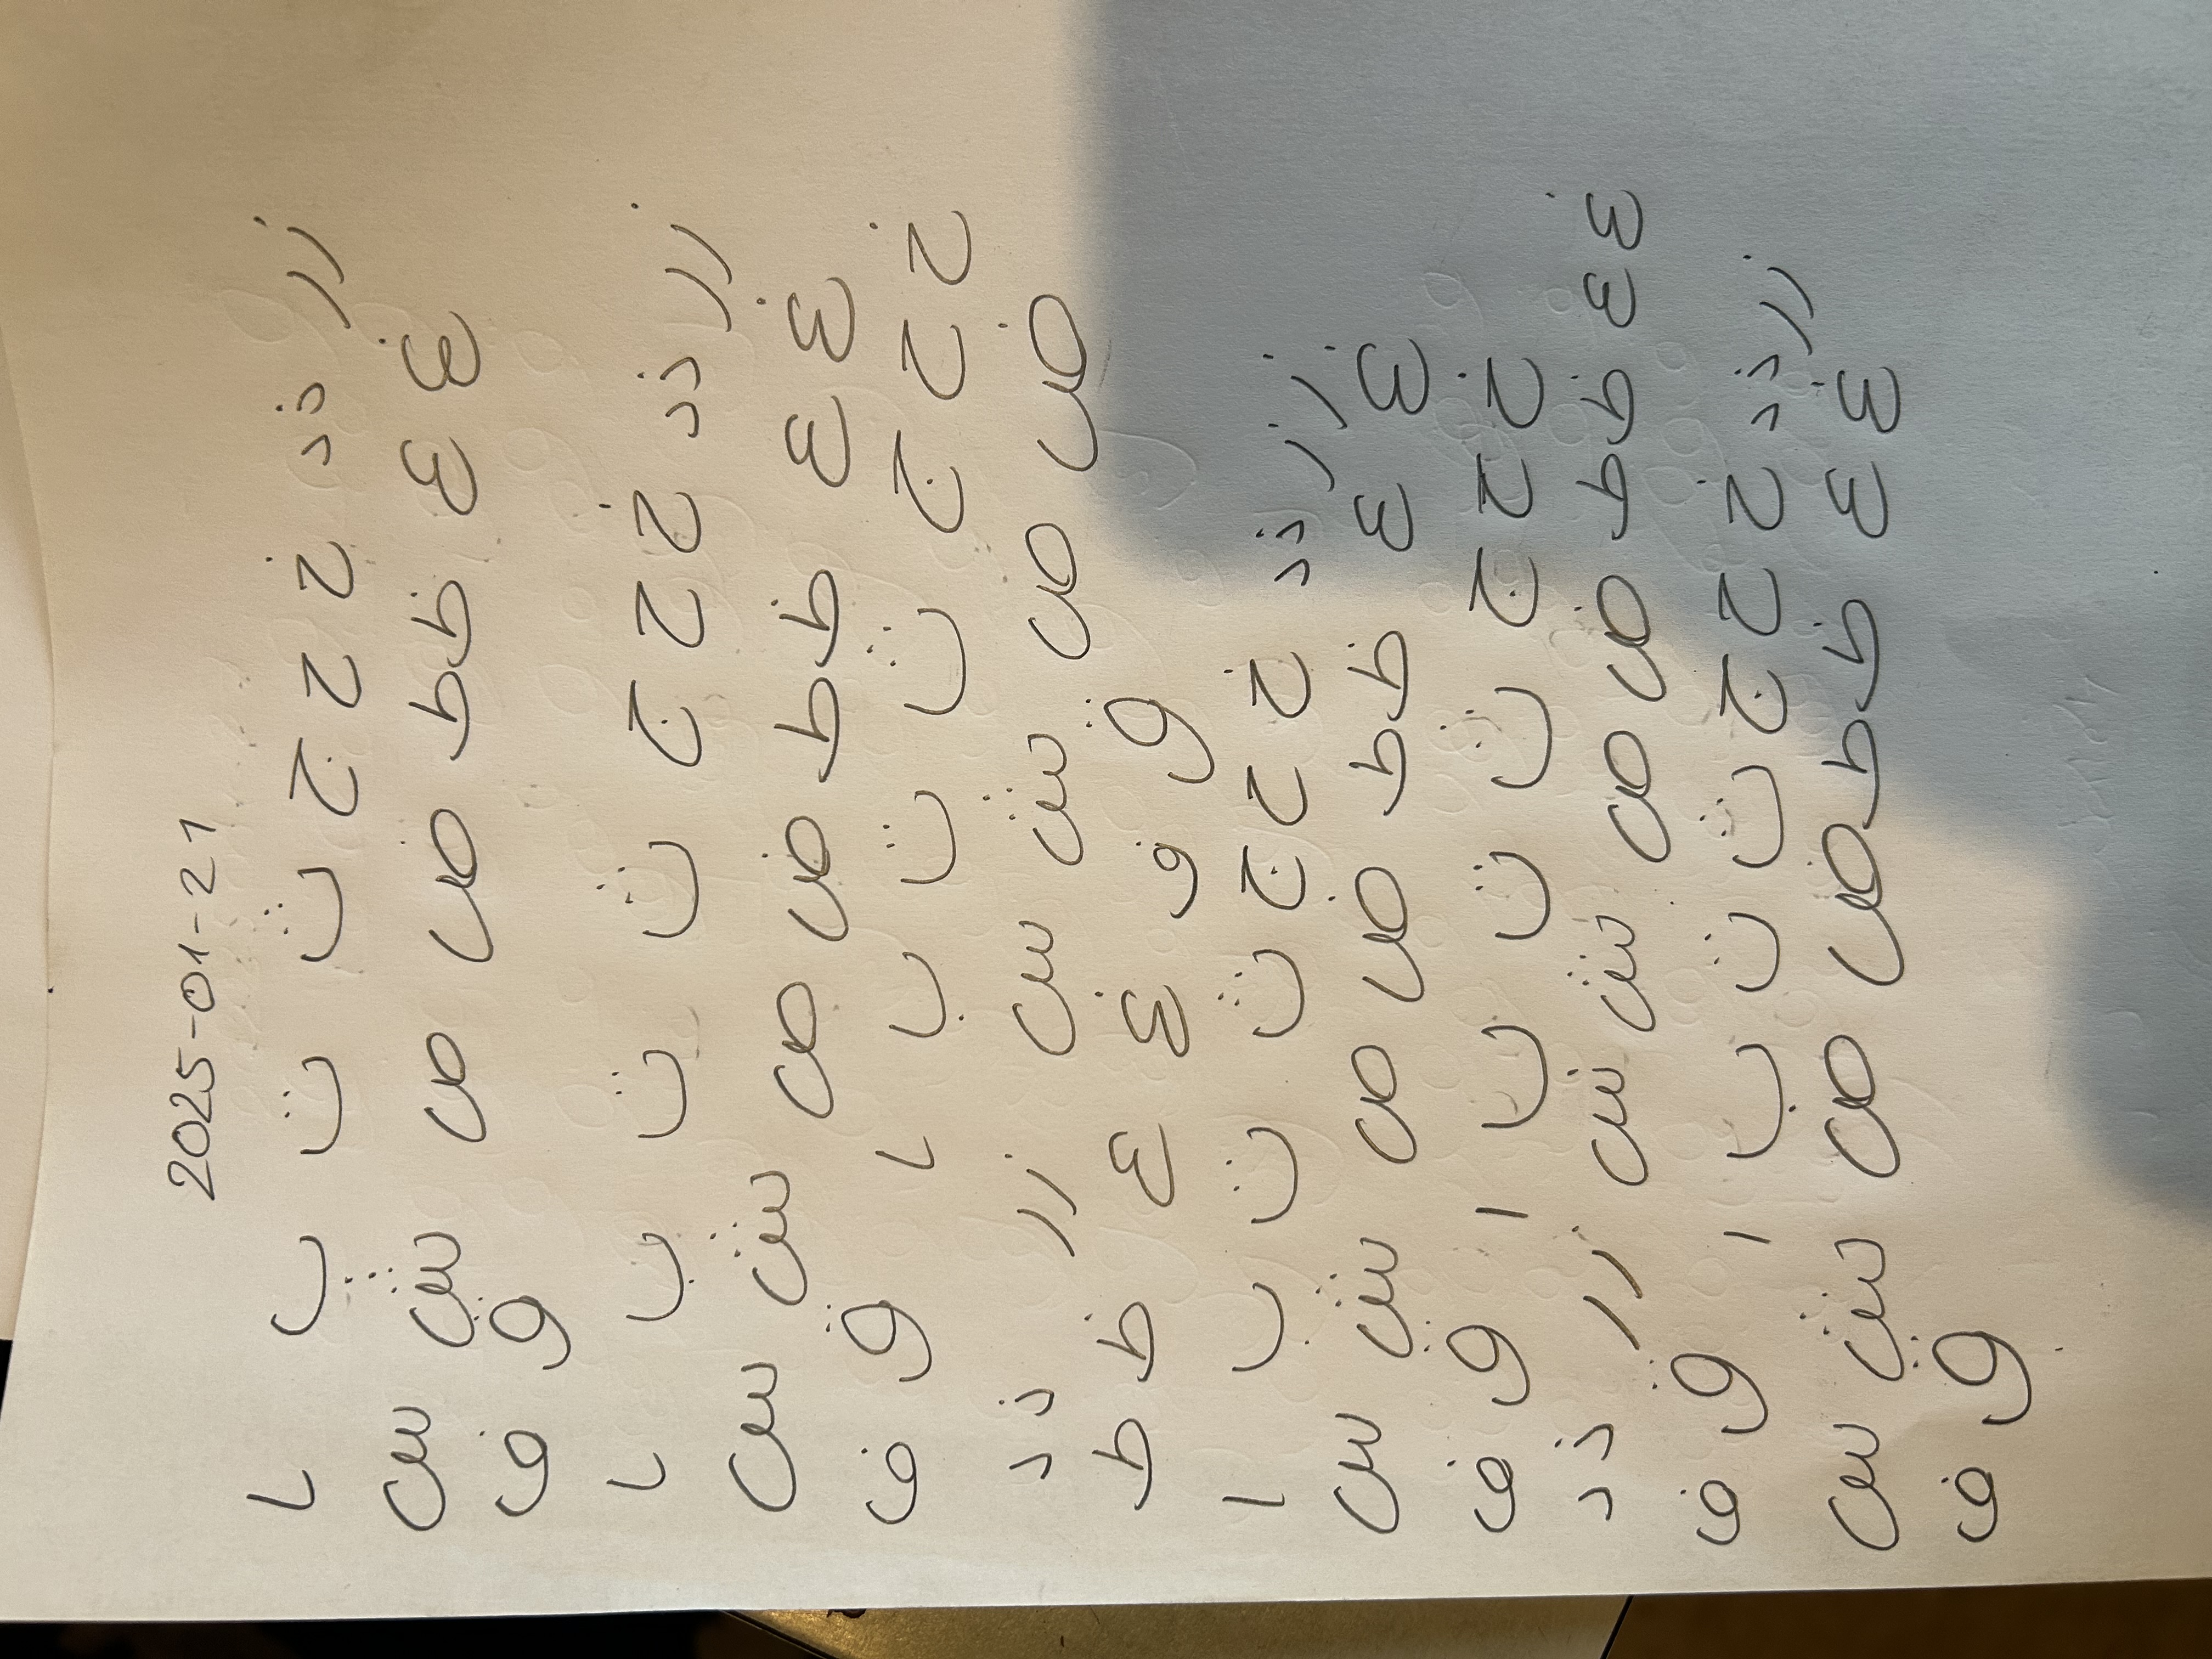 2025-01-21
ا ب ت ث ج ح خ د ذ ر ز
س ش ص ض ط ظ ع غ
ف ق
ا ب ت ث ج ح خ د ذ ر ز
س ش ص ض ط ظ ع غ
ف ق ا ب ت ث ج ح خ
د ذ ر ز س ش ص ض
ط ظ ع غ ف ق
ا ب ت ث ج ح خ د ذ ر ز
س ش ص ض ط ظ ع غ
ف ق ا ب ت ث ج ح خ
د ذ ر ز س ش ص ض ط ظ ع غ
ف ق ا ب ت ث ج ح خ د ذ ر ز
س ش ص ض ط ظ ع غ
ف ق